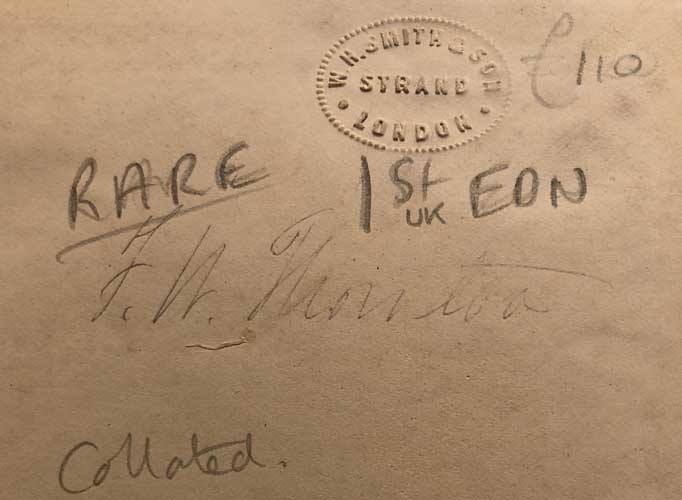 W. H. SMITH & SON
STRAND
LONDON
£110
RARE 1St UK EDN
F. W. Thornton
Collated.